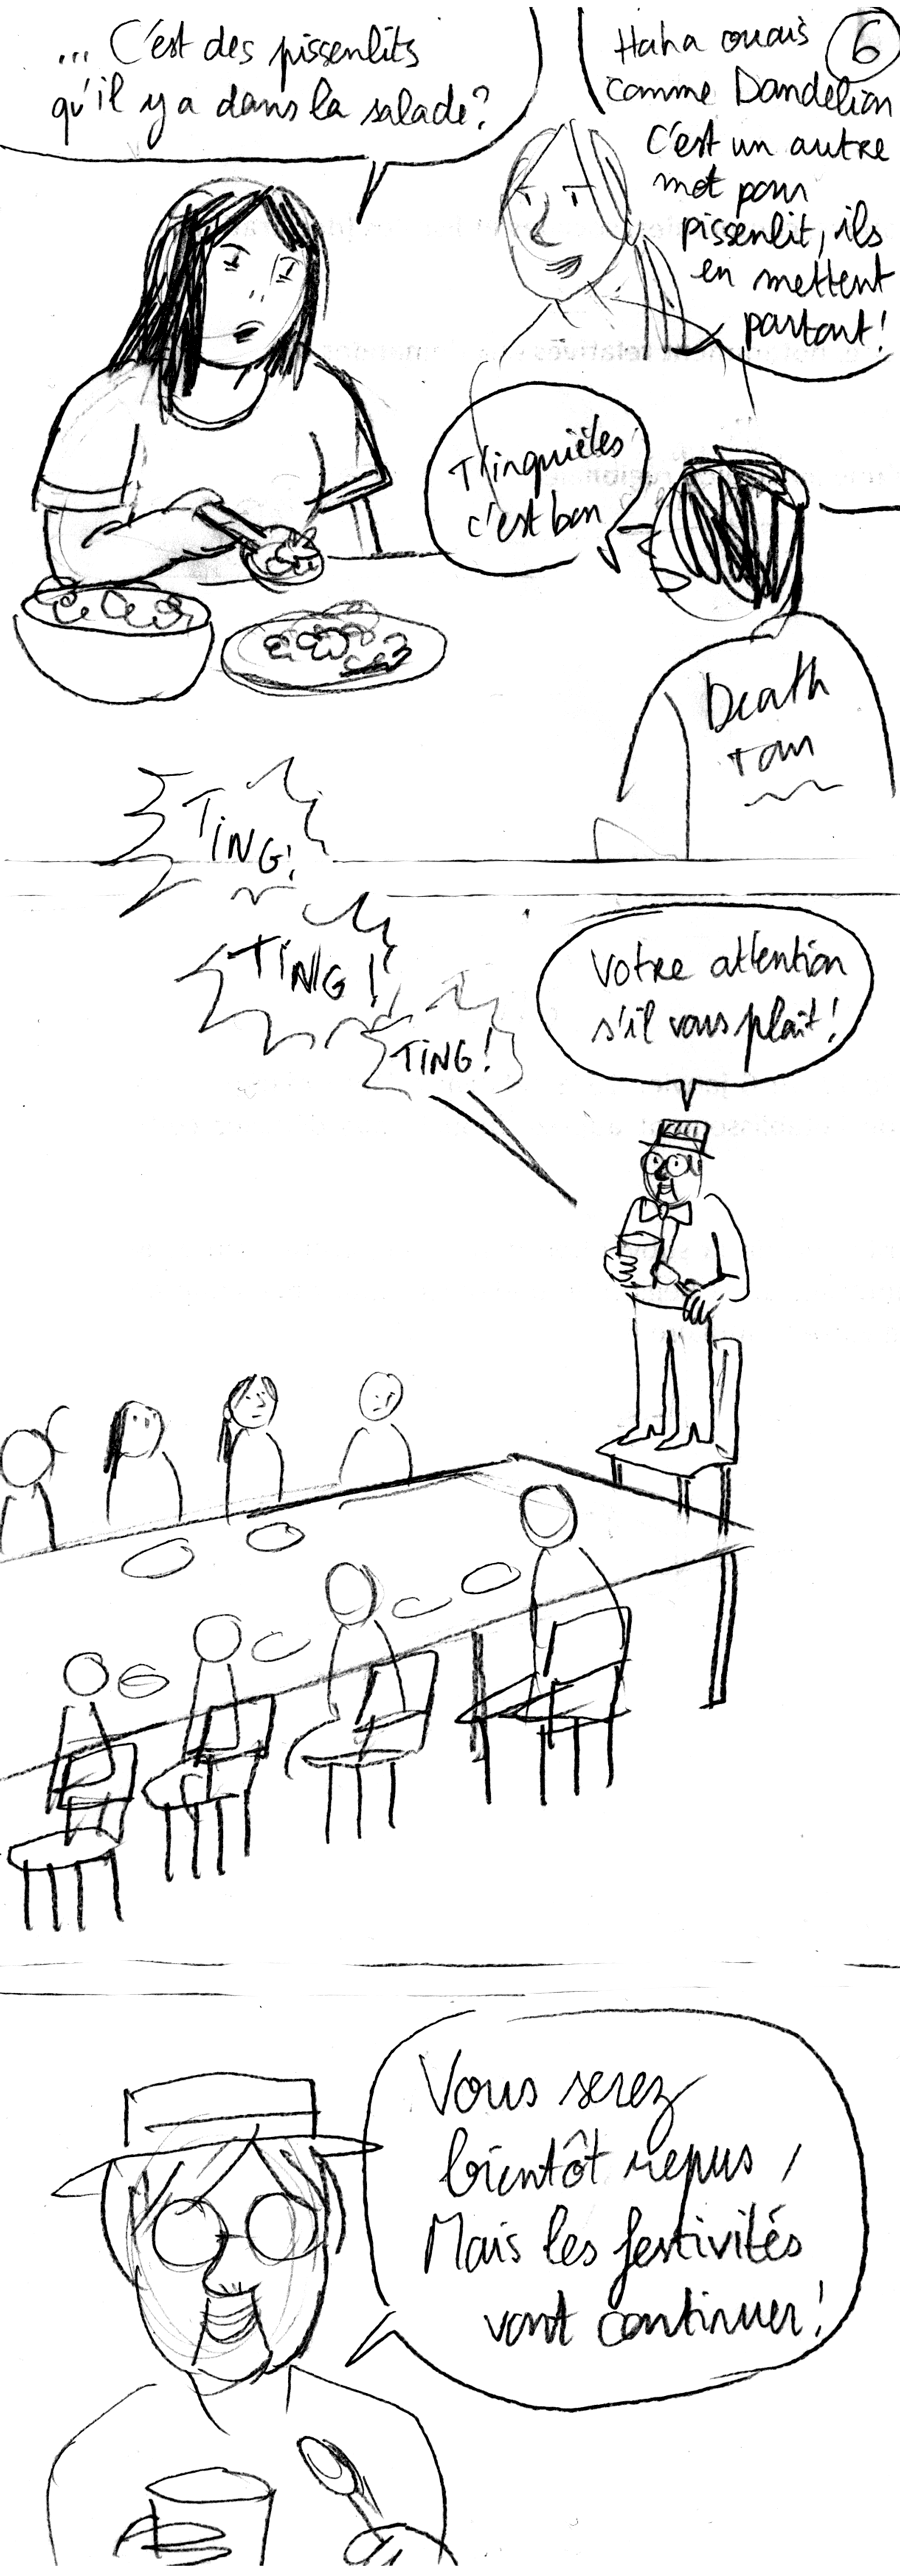 ... C'est des pissenlits
qu'il y a dans la salade?
6
Haha ouais
comme Dandelion
c'est un autre
mot pour
pissenlit, ils
en mettent
partout!
T'inquiètes
c'est bon
Death
TING!
TING!
TING!
Votre attention
s'il vous plait!
Vous serez
bientôt repus,
Mais les festivités
vont continuer!